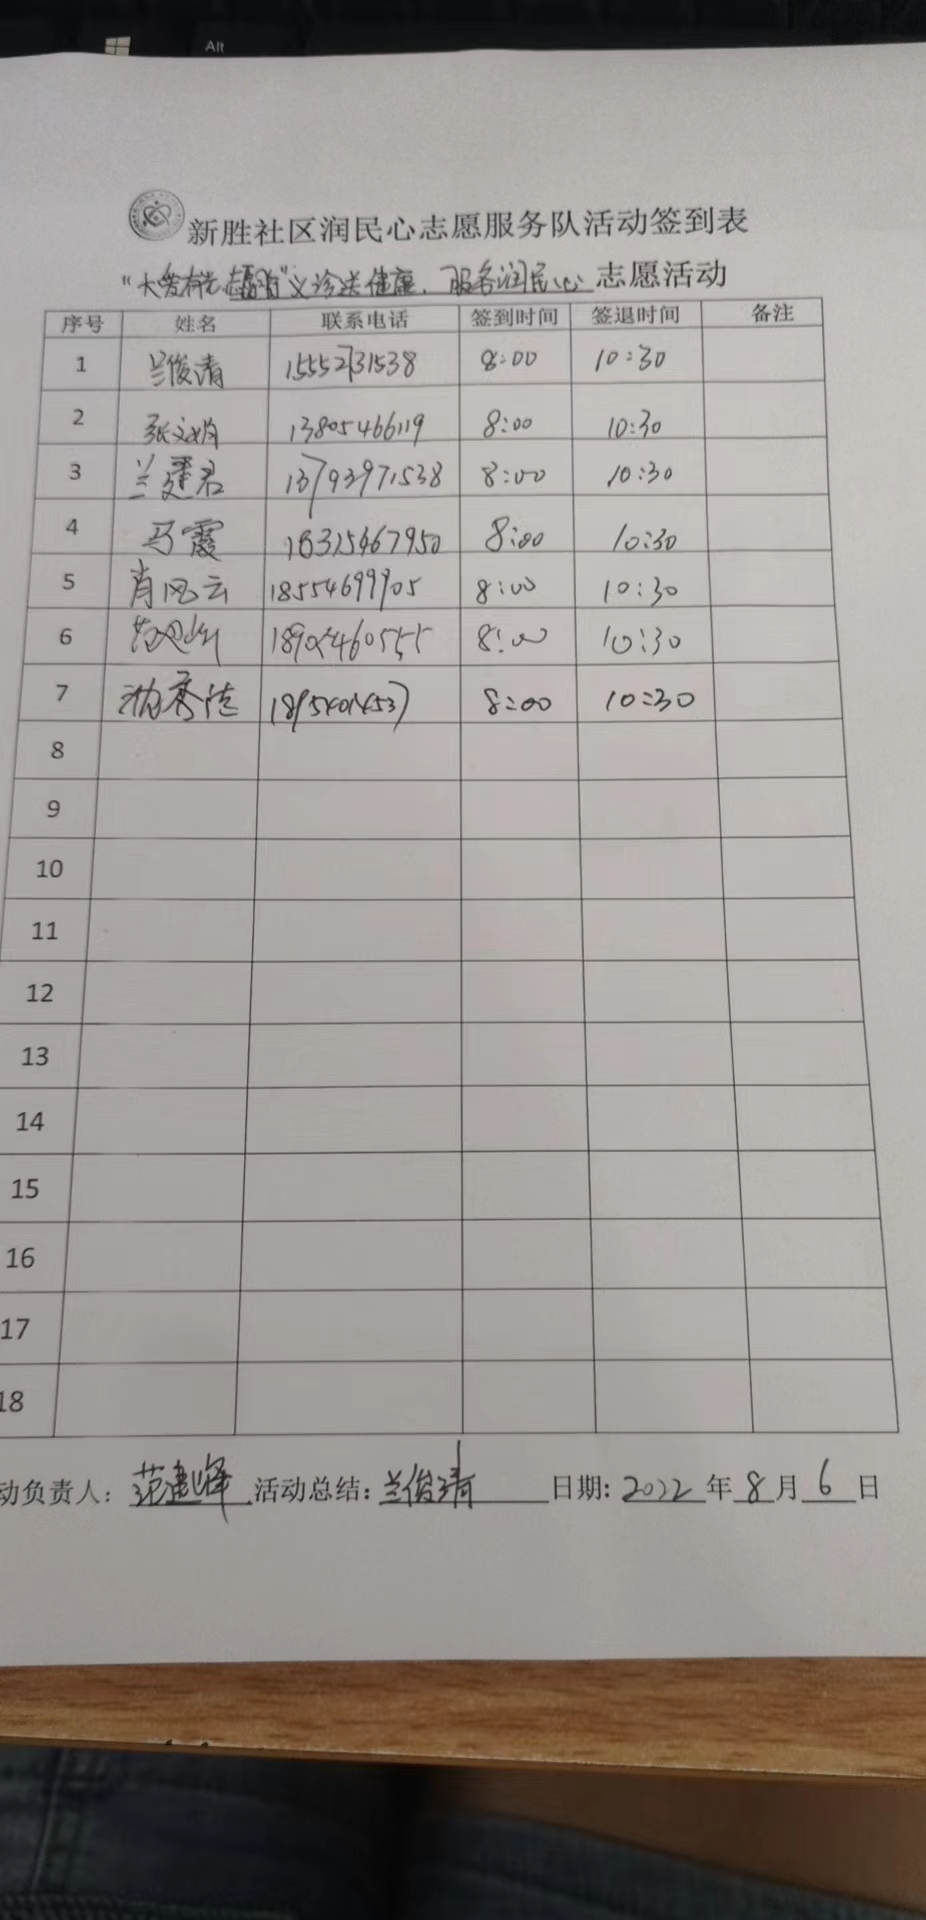 Alt
新胜社区润民心志愿服务队活动签到表
义诊送健康、服务润民心 志愿活动
序号 姓名 联系电话 签到时间 签退时间 备注
1 兰俊清 15552731538 8:00 10:30
2 张文娟 13805466119 8:00 10:30
3 兰建君 13793971538 8:00 10:30
4 马霞 8:00 10:30
5 肖风云 18554699905 8:00 10:30
6 8:00 10:30
7 8:00 10:30
8
9
10
11
12
13
14
15
16
17
18
动负责人: 范建峰 活动总结: 兰俊清 日期: 2022 年 8 月 6 日